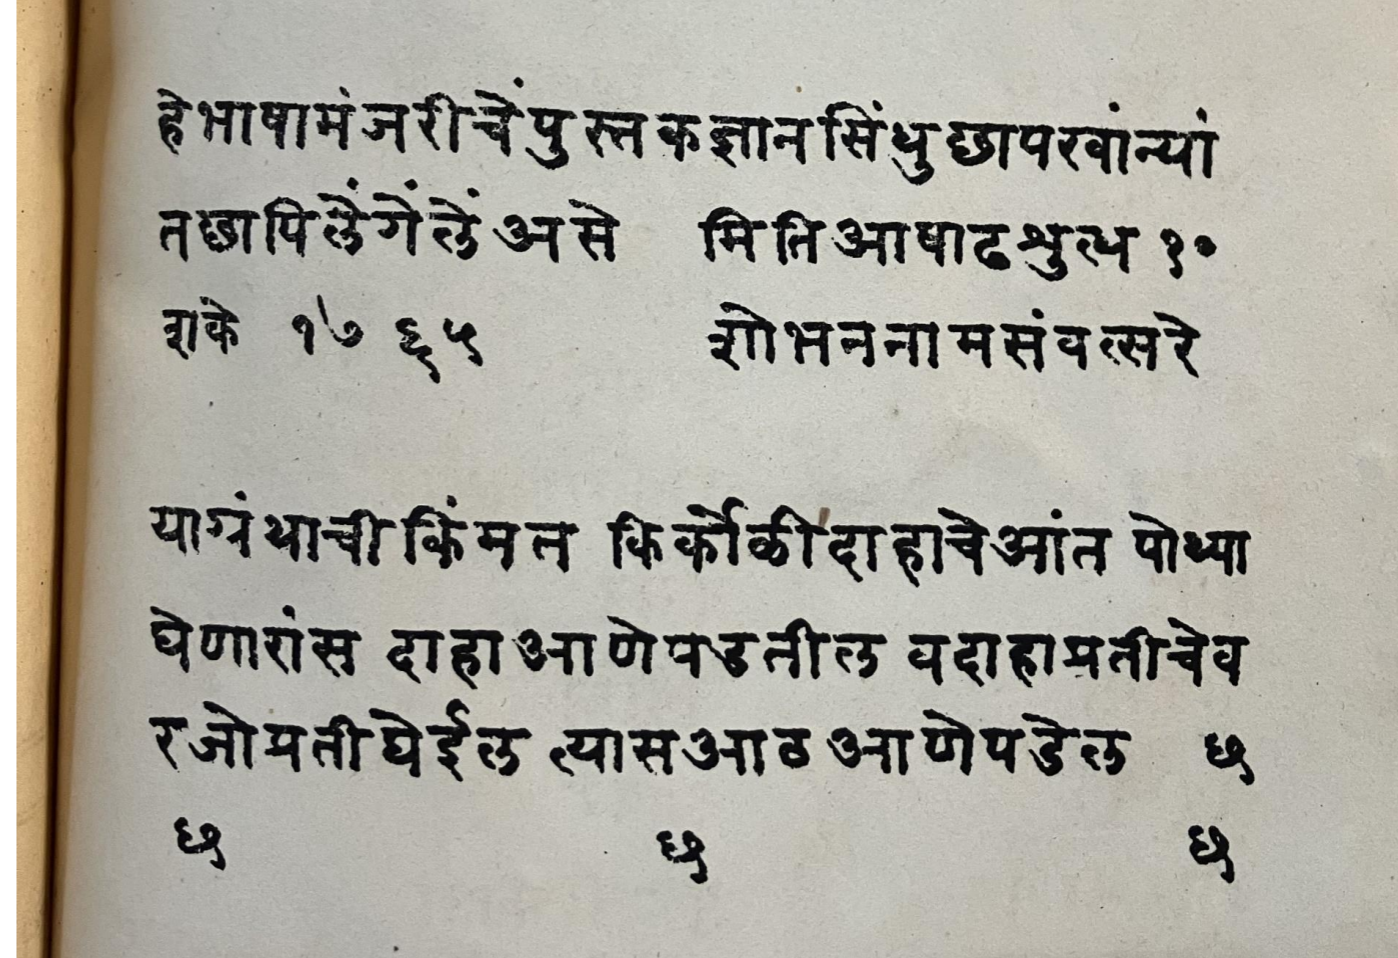 हेभाषामंजरीचेंपुस्तकज्ञानसिंधुछापखांन्यां
तछापिलेंगेलेंअसे मितिआषाढश्रुत्ध १०
शके १७६५ शोभननामसंवत्सरे
याग्रंथाचीकिंमत किर्कोळीदाहाचेआंत पोथ्या
घेणारांस दाहाआणेपडतील वदाहाप्रतीचेव
रजोप्रतीघेईल त्यासआठआणेपडेल छ
छ छ छ